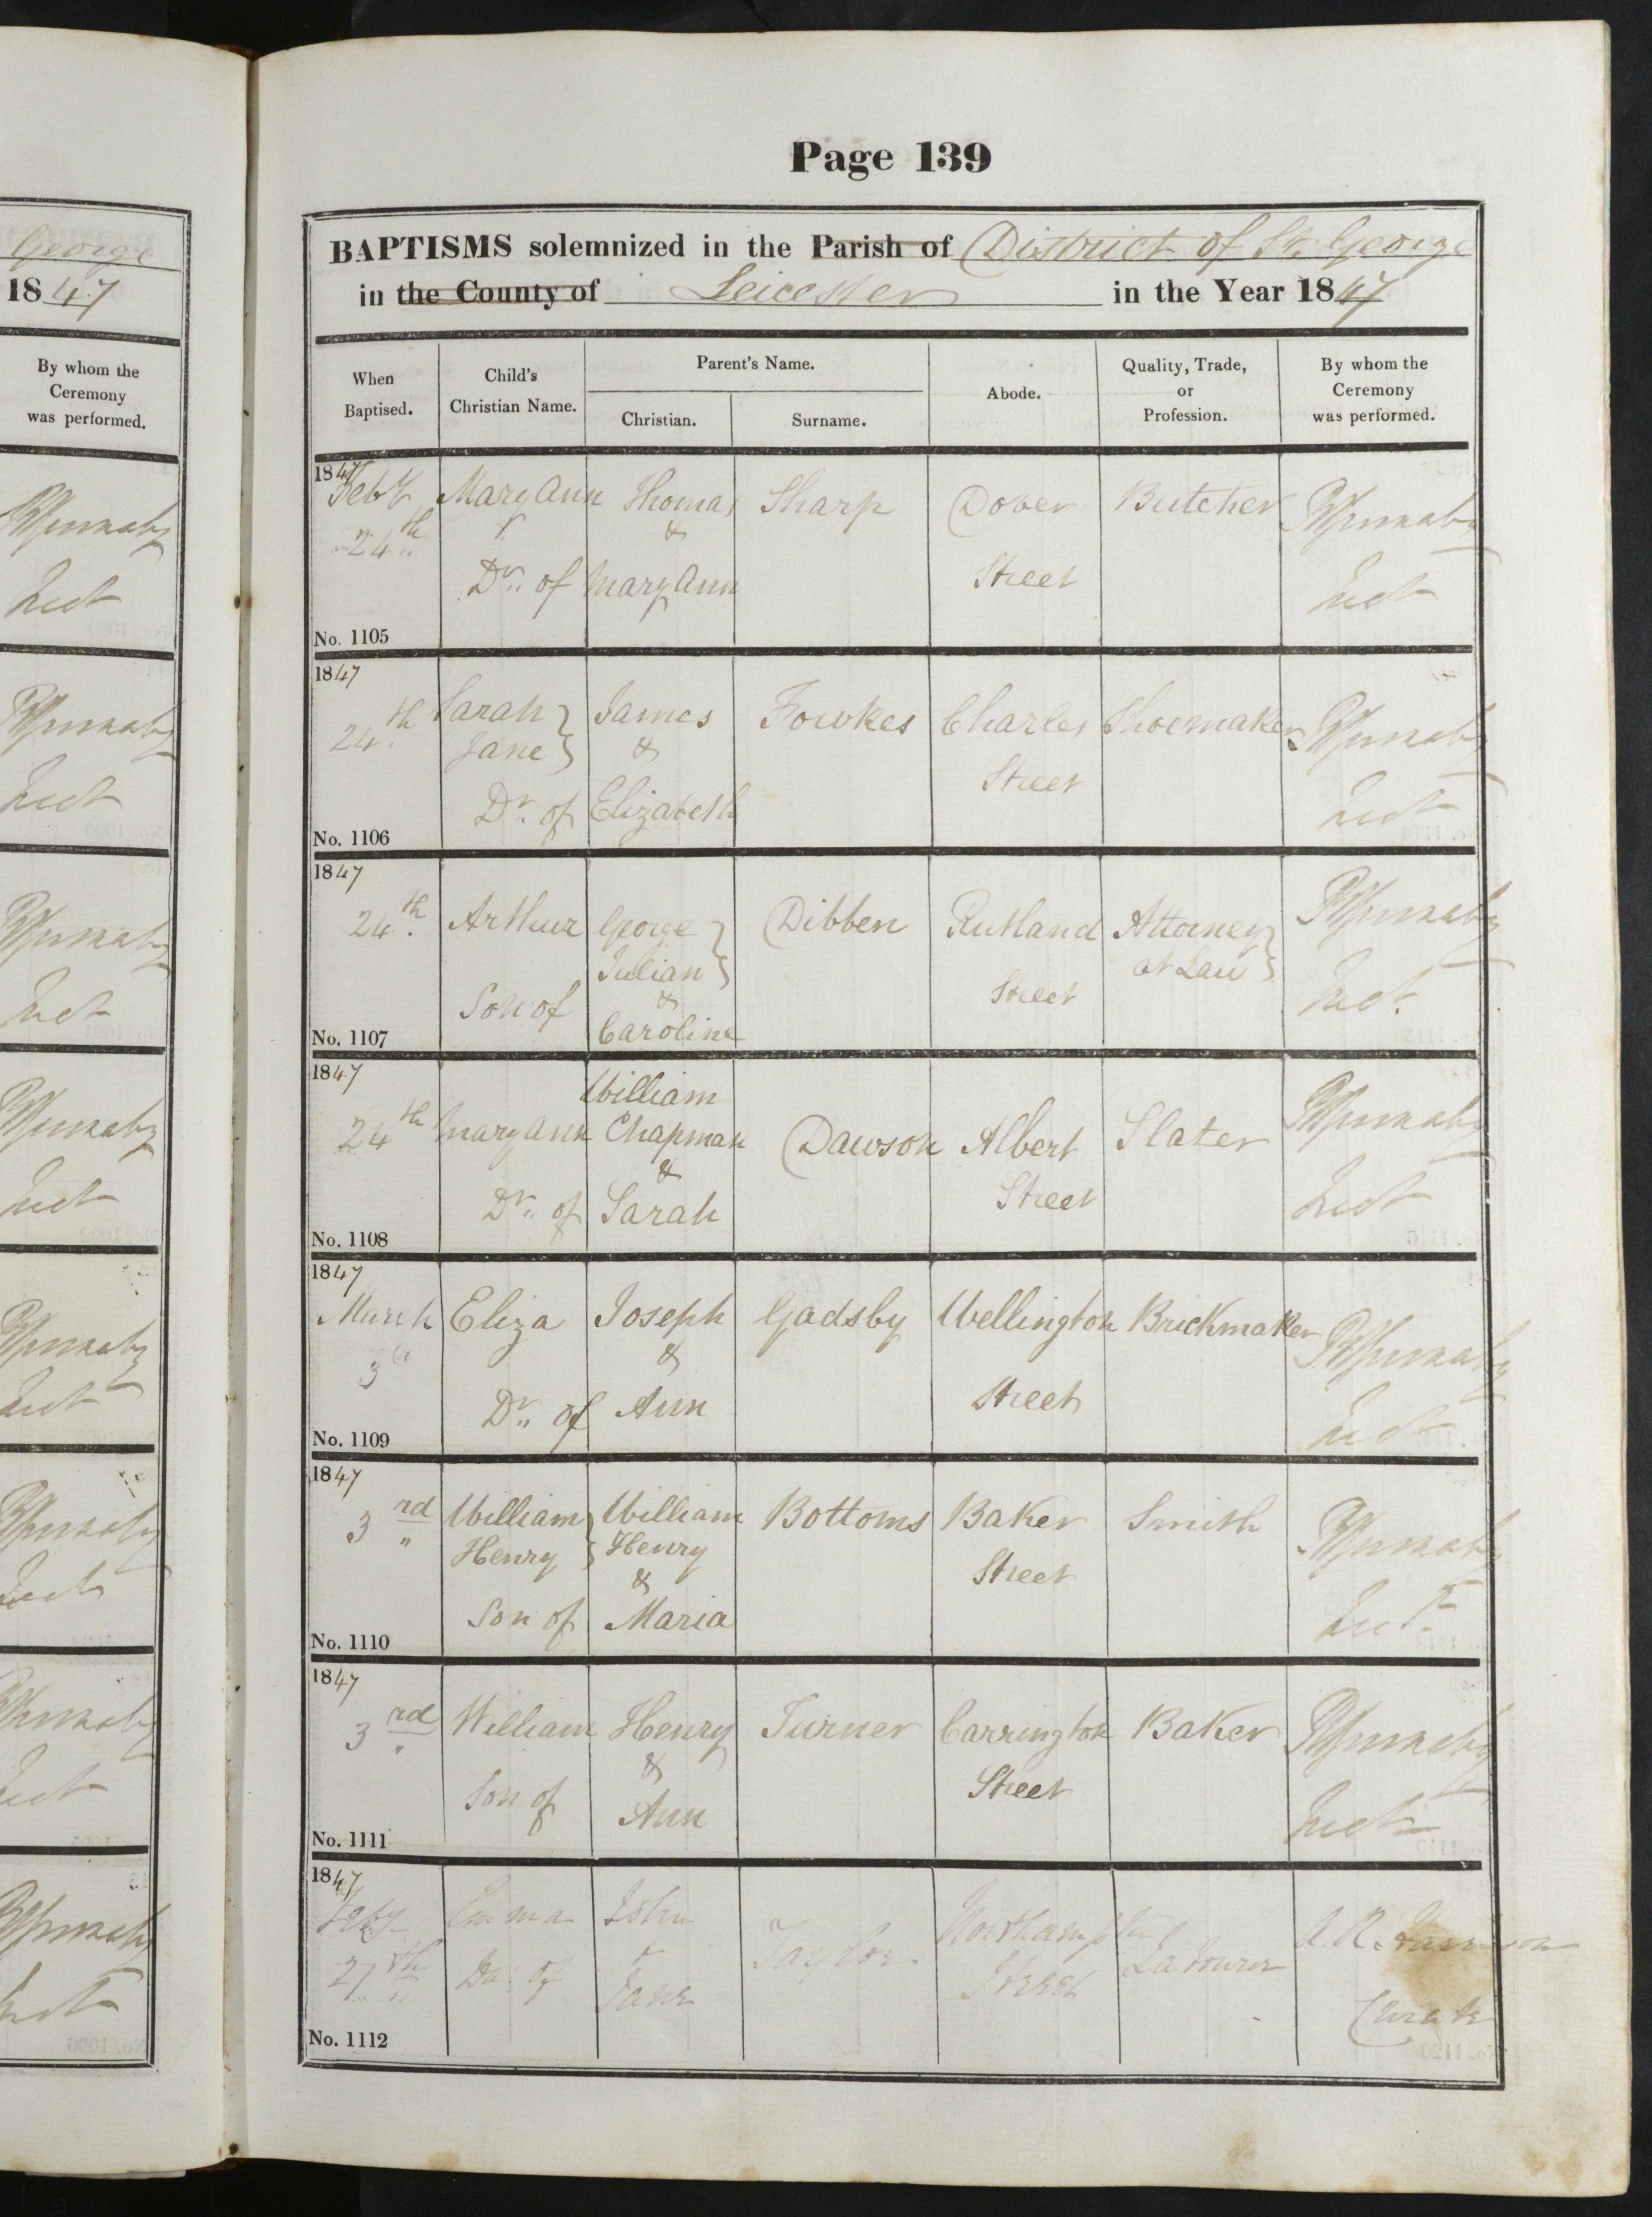 George
1847
By whom the
Ceremony
was performed.
Page 139
BAPTISMS solemnized in the Parish of District of St. George
in the County of Leicester in the Year 1847
When
Baptised.
Child's
Christian Name.
Parent's Name.
Christian.
Surname.
Abode.
Quality, Trade,
or
Profession.
By whom the
Ceremony
was performed.
1847
Feby Mary Ann Thomas Sharp Dover Butcher
24th &
Dr. of Mary Ann Street
No. 1105
1847
24th Sarah James Fowkes Charles Shoemaker
Jane &
Street
Dr. of Elizabeth
No. 1106
1847
24th Arthur George Dibben Rutland Attorney
Julian at Law
Son of & Street
Caroline
No. 1107
1847
William
24th Mary Ann Chapman Dawson Albert Slater
&
Dr. of Sarah Street
No. 1108
1847
March Eliza Joseph Gadsby Wellington Brickmaker
3 &
Dr. of Ann Street
No. 1109
1847
3rd William William Bottoms Baker Smith
Henry Henry
& Street
Son of Maria
No. 1110
1847
3rd William Henry Turner Carrington Baker
&
Son of Ann Street
No. 1111
1847
Feby Emma John Taylor Northampton Labourer
27th Da. of Jane Street
Curate
No. 1112